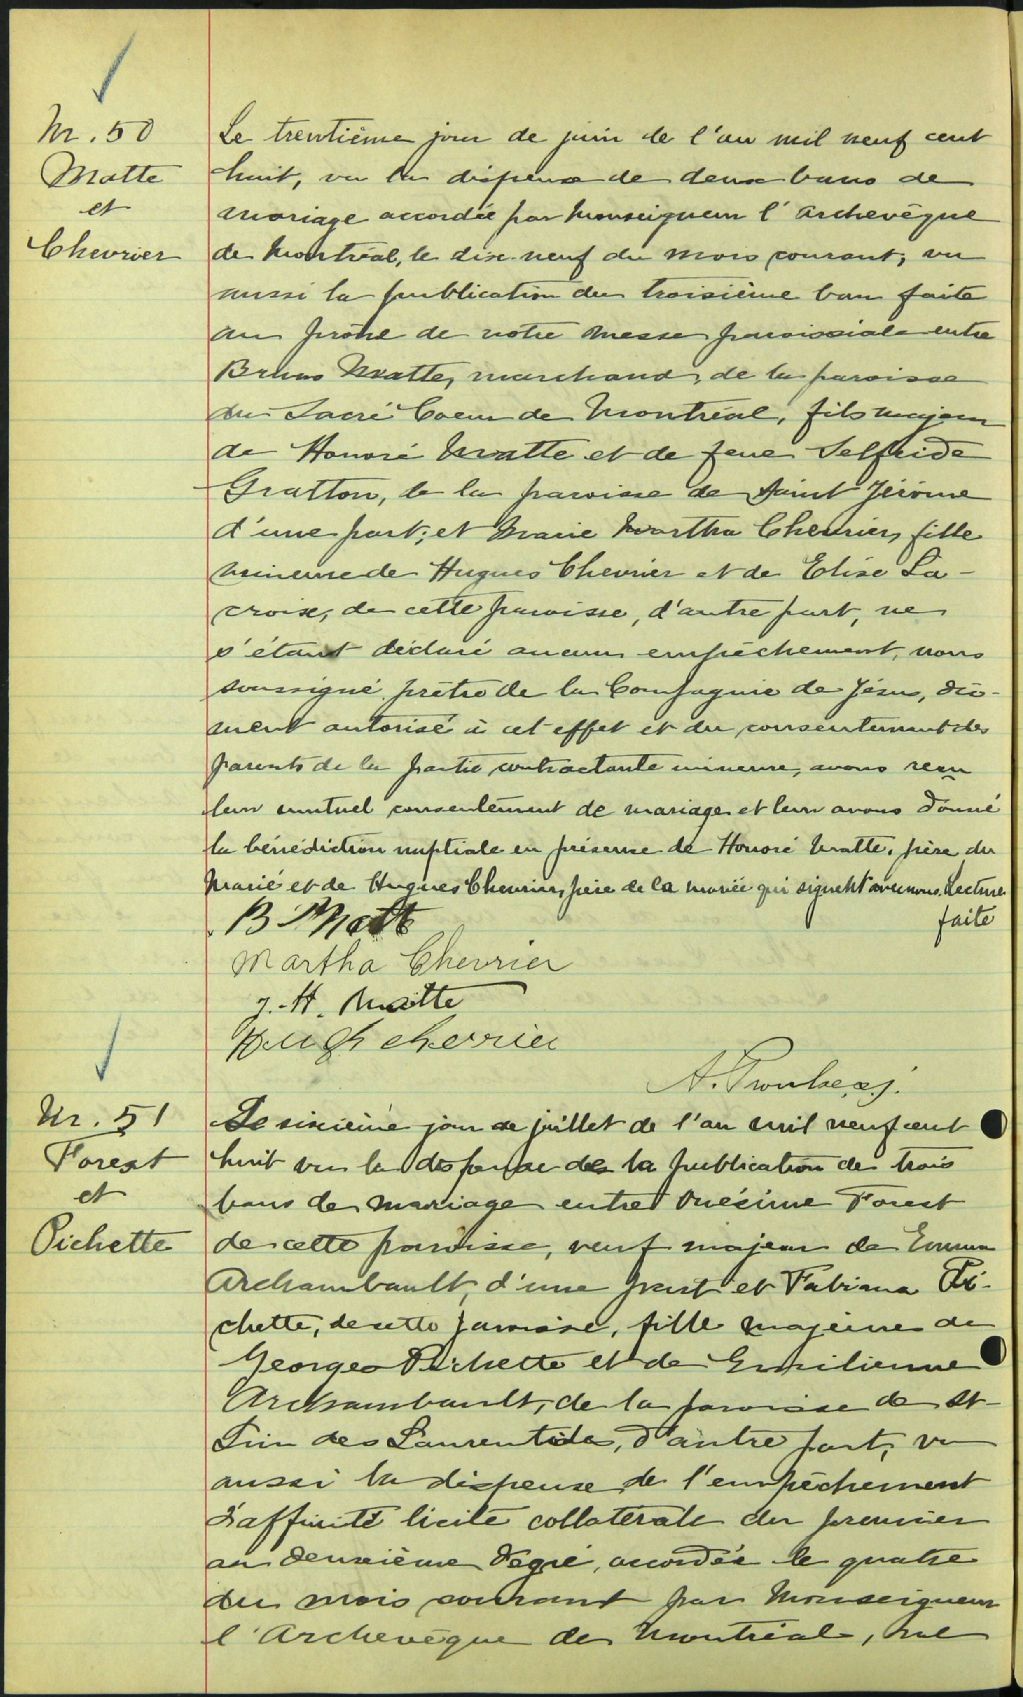 M. 50
Matte
et
Chevrier
Le trentième jour de juin de l'an mil neuf cent
huit, vu la dispense de deux bans de
mariage accordée par Monseigneur l'Archevêque
de Montréal, le dix-neuf du mois courant, vu
aussi la publication du troisième ban faite
au prône de notre messe paroissiale entre
Bruno Matte, marchand, de la paroisse
du Sacré Coeur de Montréal, fils majeur
de Honoré Matte et de feue
Gratton, de la paroisse de Saint Jérôme
d'une part; et Marie Martha Chevrier, fille
mineure de Hugues Chevrier et de Elise La-
croix, de cette paroisse, d'autre part, ne
s'étant déclaré aucun empêchement, nous
soussigné prêtre de la Compagnie de Jésus, dû-
ment autorisé à cet effet et du consentement des
parents de la partie contractante mineure, avons reçu
leur mutuel consentement de mariage et leur avons donné
la bénédiction nuptiale en présence de Honoré Matte, père du
marié et de Hugues Chevrier, père de la mariée qui signent avec nous. Lecture
faite
B Matte
Martha Chevrier
J.-H. Matte
Hugh Chevrier
M. 51
Forest
et
Pichette
Le sixième jour de juillet de l'an mil neuf cent
huit vu la dispense de la publication de trois
bans de mariage entre Onésime Forest
de cette paroisse, veuf majeur de Emma
Archambault, d'une part et Fabiana Pi-
chette, de cette paroisse, fille majeure de
Georges Pichette et de Emilienne
Archambault, de la paroisse de St-
Lin des Laurentides, d'autre part, vu
aussi la dispense de l'empêchement
d'affinité licite collatérale du premier
au deuxième degré, accordée le quatre
du mois courant par Monseigneur
l'Archevêque de Montréal, ne